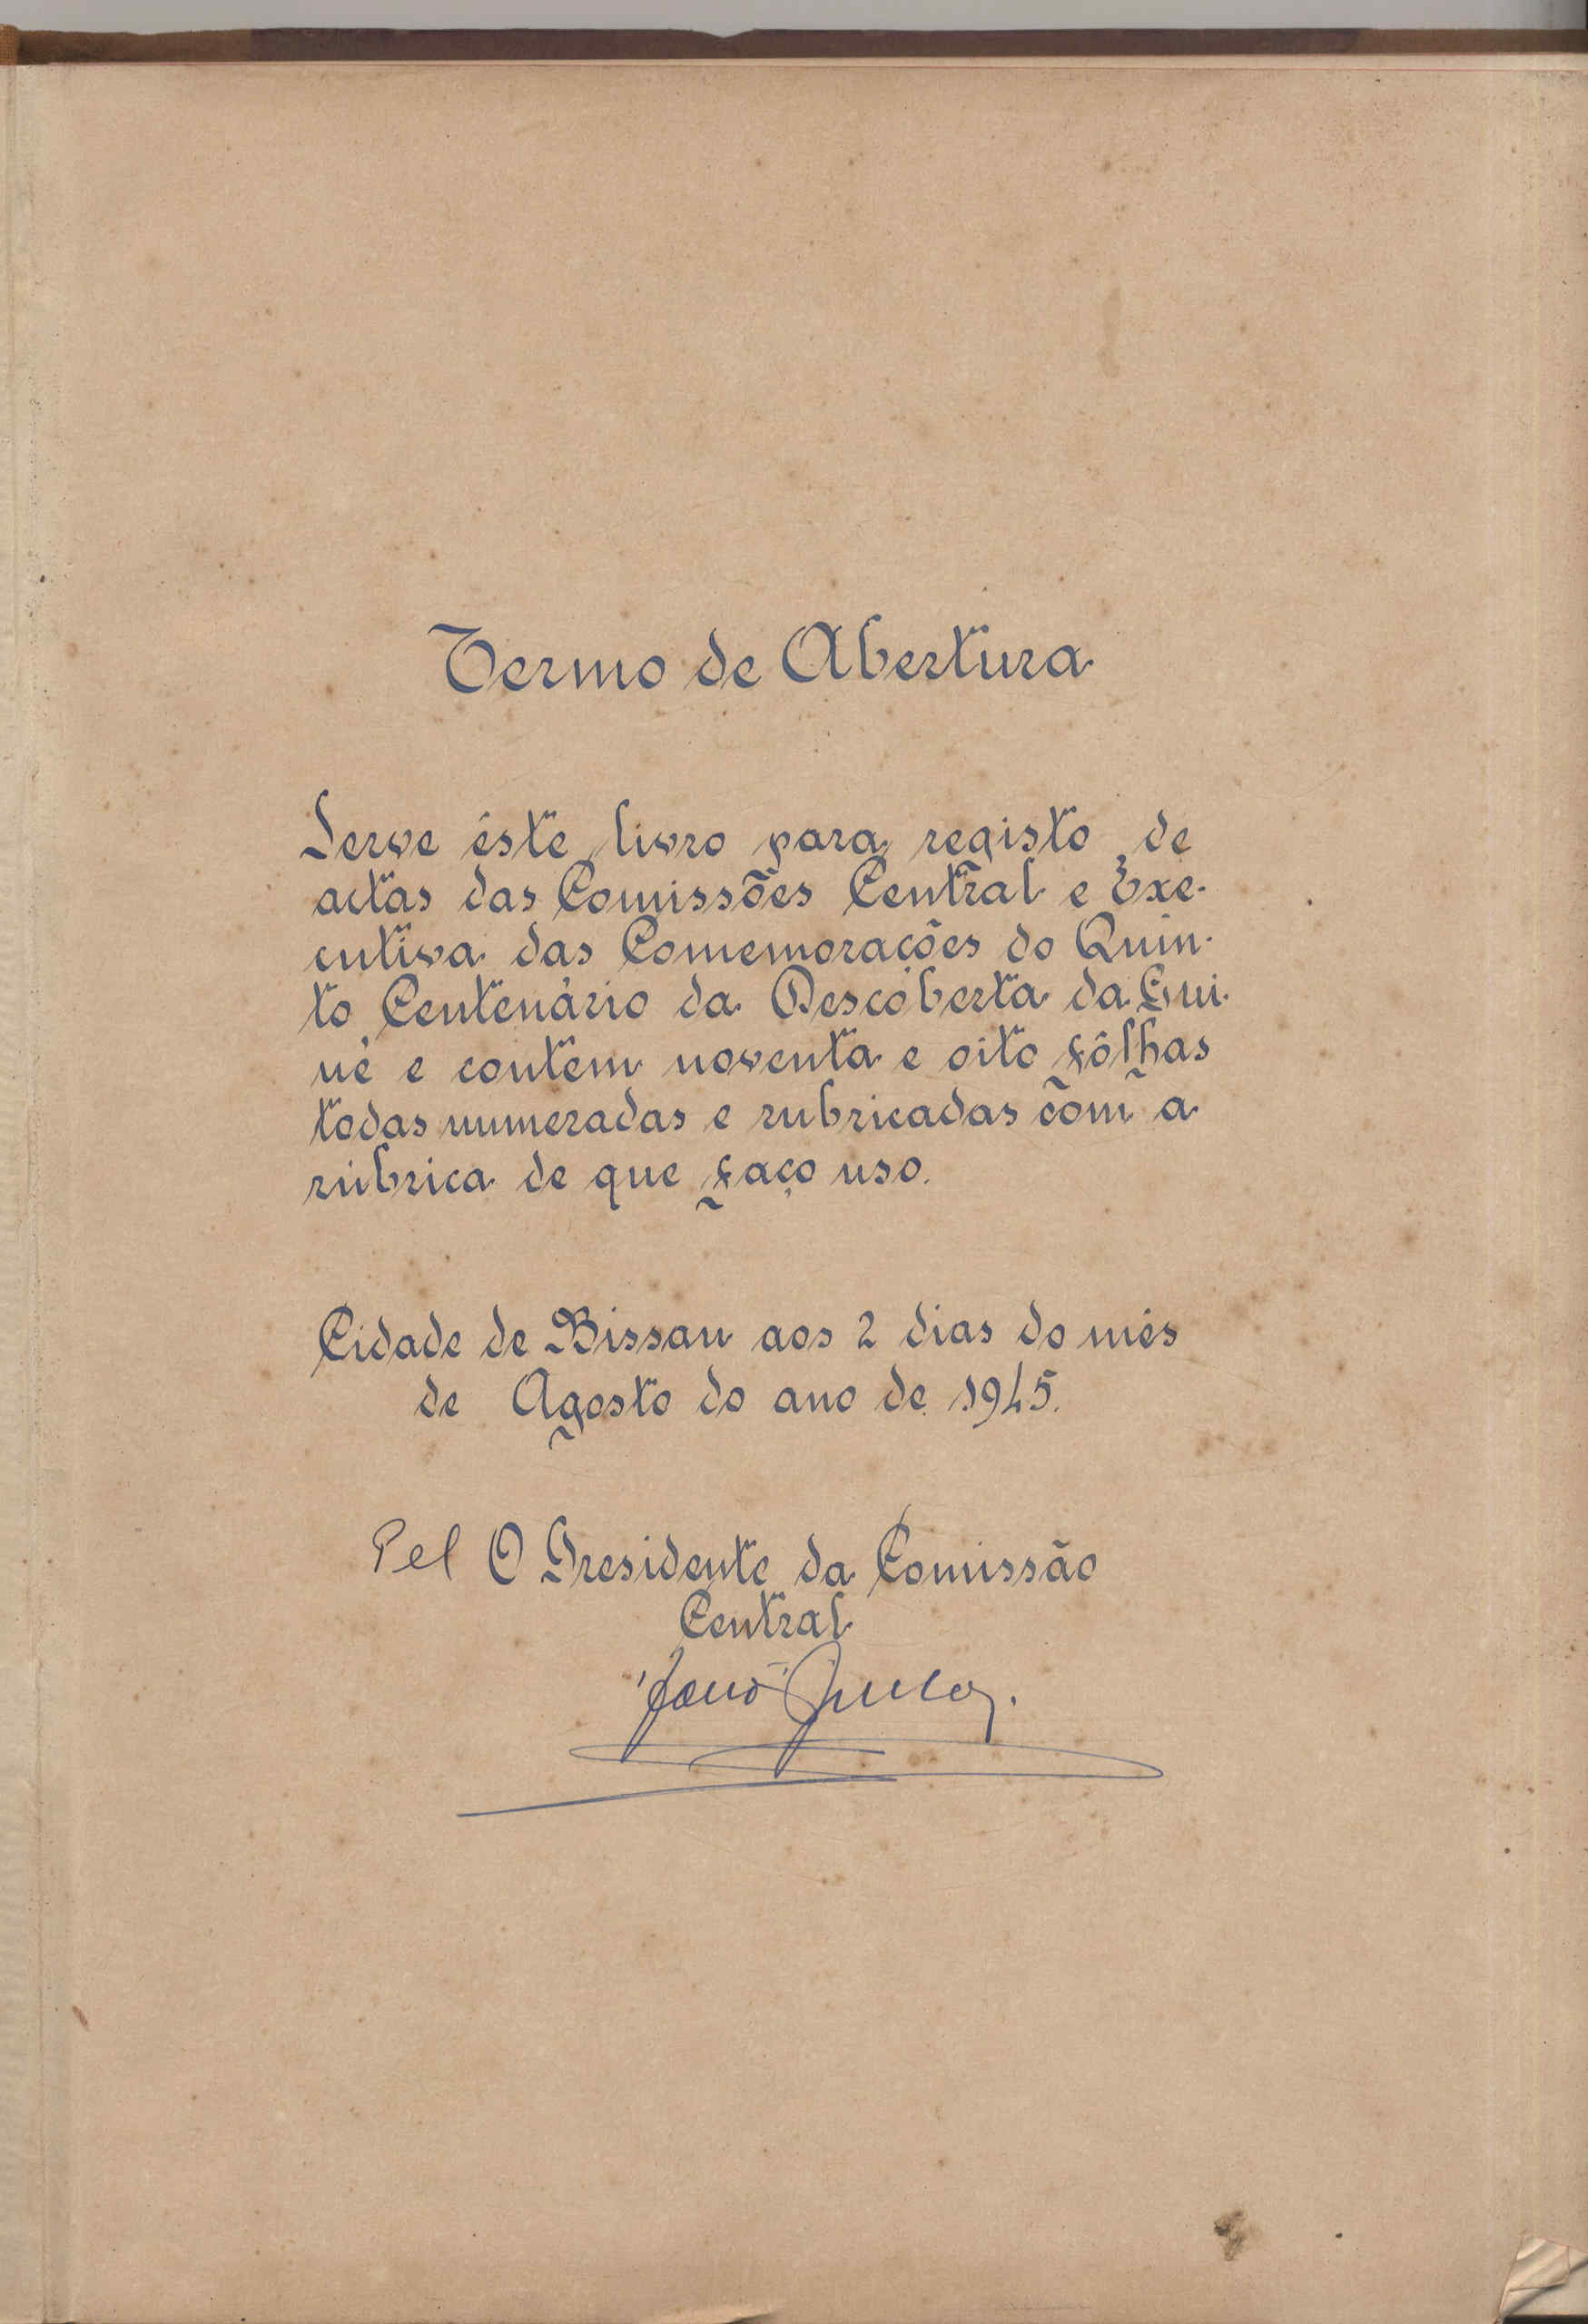 Termo de Abertura
Serve êste livro para registo de
actas das Comissões Central e Exe-
cutiva das Comemorações do Quin-
to Centenário da Descoberta da Gui-
né e contém noventa e oito fôlhas
todas numeradas e rubricadas com a
rúbrica de que faço uso.
Cidade de Bissau aos 2 dias do mês
de Agosto do ano de 1945.
Pel O Presidente da Comissão
Central